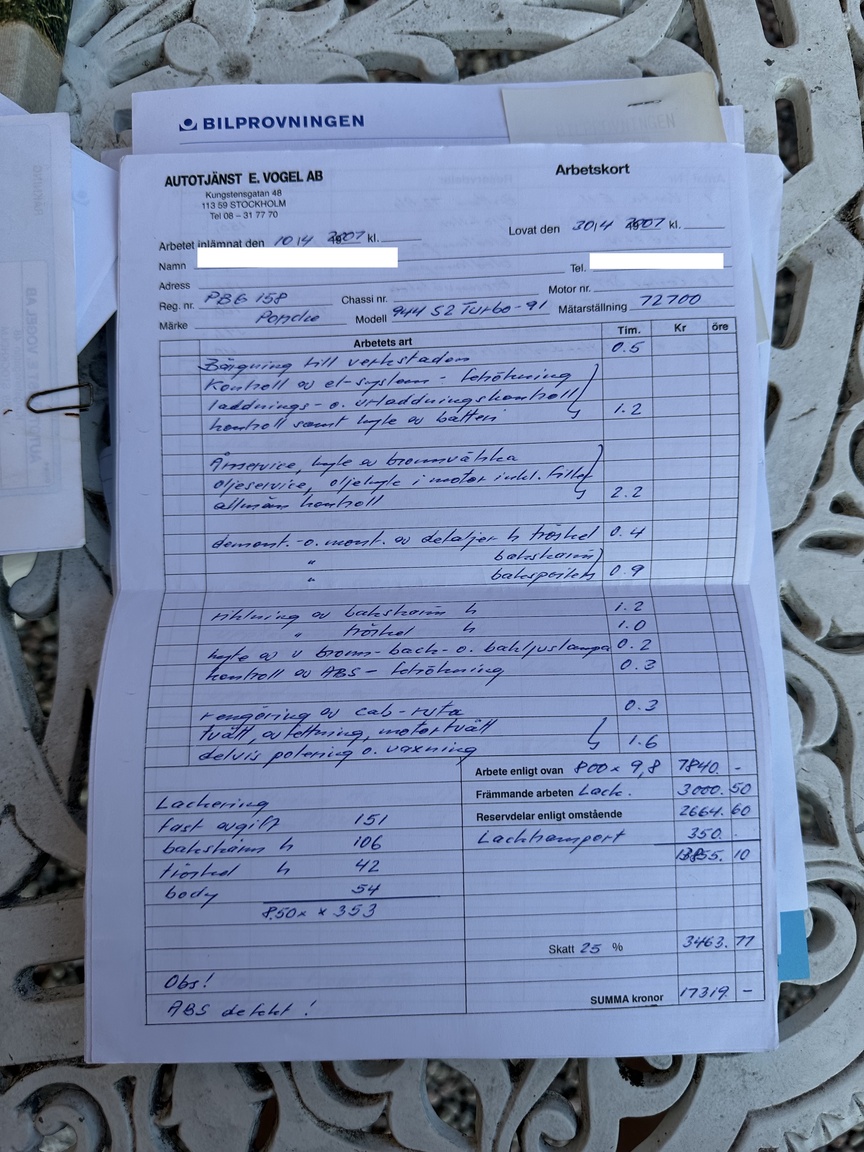 BILPROVNINGEN
AUTOTJÄNST E. VOGEL AB
Arbetskort
Kungstensgatan 48
113 59 STOCKHOLM
Tel 08 – 31 77 70
Arbetet inlämnat den 10/4 2007 kl.
Lovat den 30/4 2007 kl.
Namn
Tel.
Adress
Motor nr.
Reg. nr. PBG 158 Chassi nr.
Mätarställning 72700
Märke Porsche Modell 944 S2 Turbo-91
Arbetets art Tim. Kr öre
Bärgning till verkstaden 0.5
Kontroll av el-system - felsökning
laddnings- o. urladdningskontroll
kontroll samt byte av batteri 1.2
Årsservice, byte av bromsvätska
oljeservice, oljebyte i motor inkl. filter
allmän kontroll 2.2
demont.-o. mont. av detaljer h tröskel 0.4
" bakskärm
" bakspoiler 0.9
riktning av bakskärm h 1.2
" tröskel h 1.0
byte av v broms-back-o. bakljuslampa 0.2
kontroll av ABS - felsökning 0.3
rengöring av cab-ruta 0.3
tvätt, avfettning, motortvätt
delvis polering o. vaxning 1.6
Arbete enligt ovan 800 x 9,8 7840. -
Främmande arbeten Lack. 3000. 50
Reservdelar enligt omstående 2664. 60
Lacktransport 350. -
13855. 10
Lackering
fast avgift 151
bakskärm h 106
tröskel h 42
body 54
8.50 x x 353
Skatt 25 % 3463. 77
Obs!
ABS defekt !
SUMMA kronor 17319. -